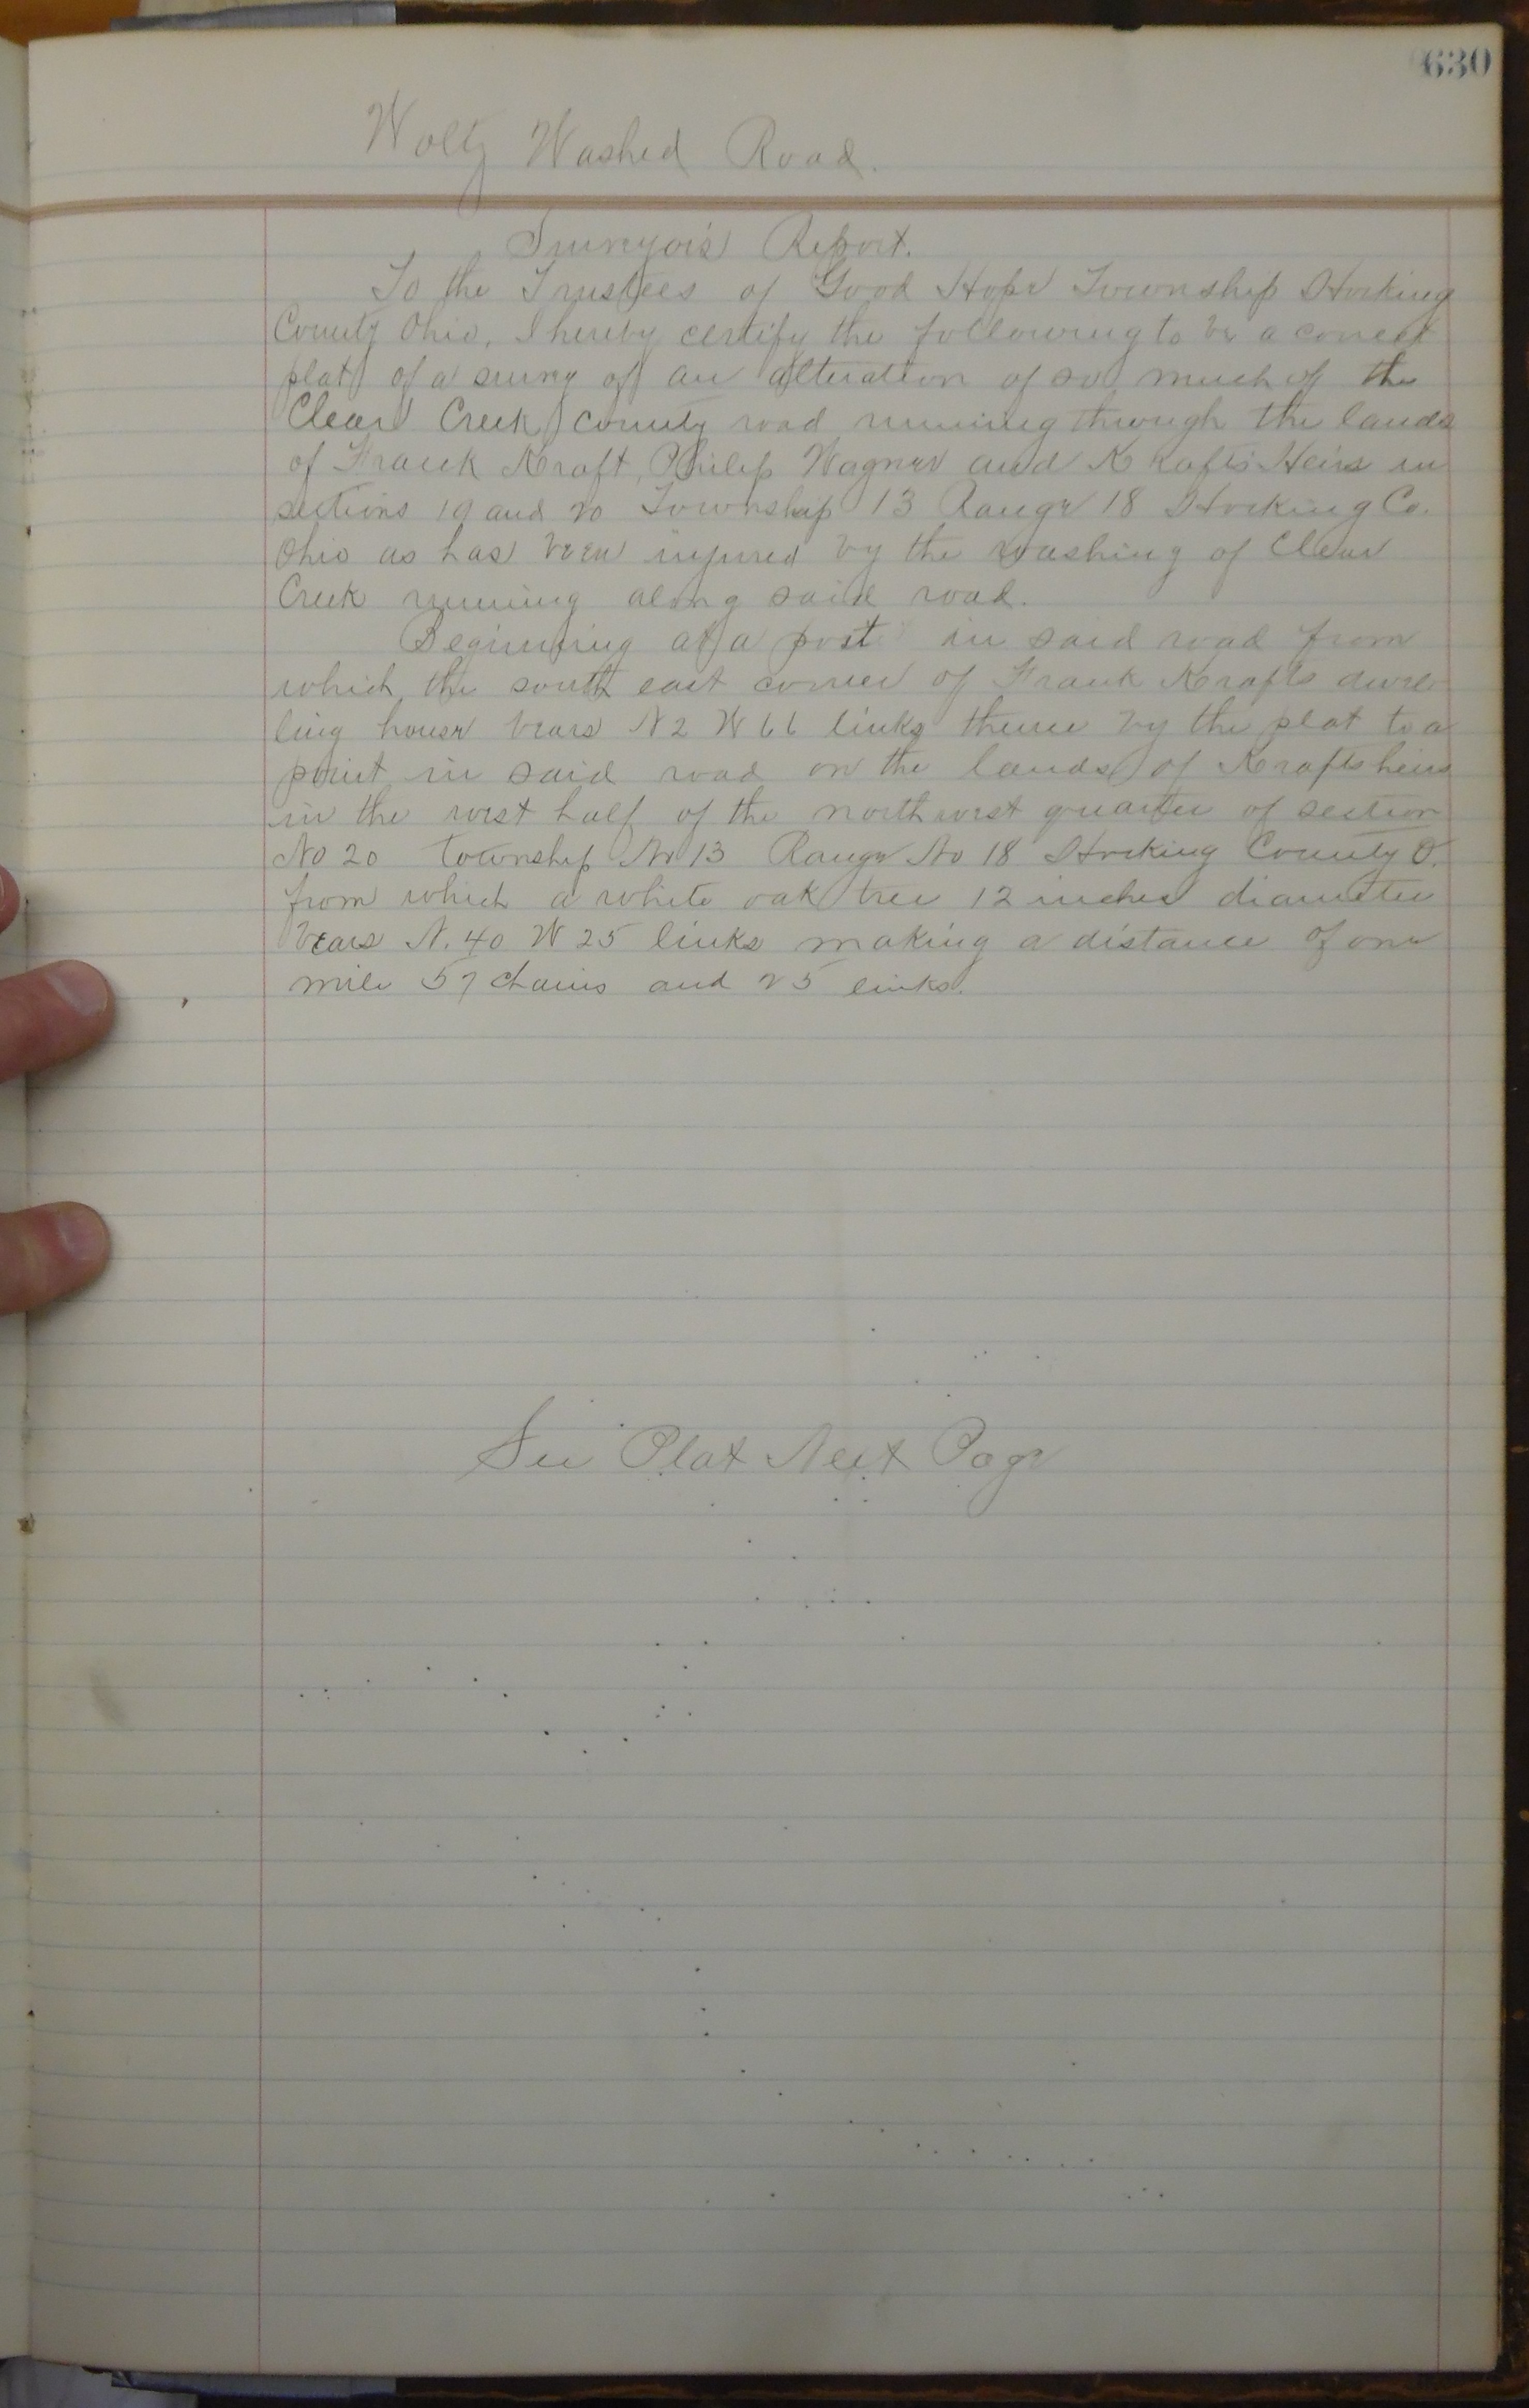 630
Woltz Washed Road.
Surveyor's Report.
To the Trustees of Good Hope Township Hocking
County Ohio, I hereby certify the following to be a correct
plat of a survey of an alteration of so much of the
Clear Creek County road running through the lands
of Frank Kraft, Philip Wagner and Kraft's Heirs in
sections 19 and 20 Township 13 Range 18 Hocking Co.
Ohio as has been injured by the washing of Clear
Creek running along said road.
Beginning at a post in said road from
which the south east corner of Frank Krafts dwel
ling house bears N 2 W 66 links thence by the plat to a
point in said road on the lands of Krafts heirs
in the west half of the northwest quarter of section
No 20 township No 13 Range No 18 Hocking County O.
from which a white oak tree 12 inches diameter
bears N. 40 W 25 links making a distance of one
mile 57 chains and 25 links.
See Plat Next Page